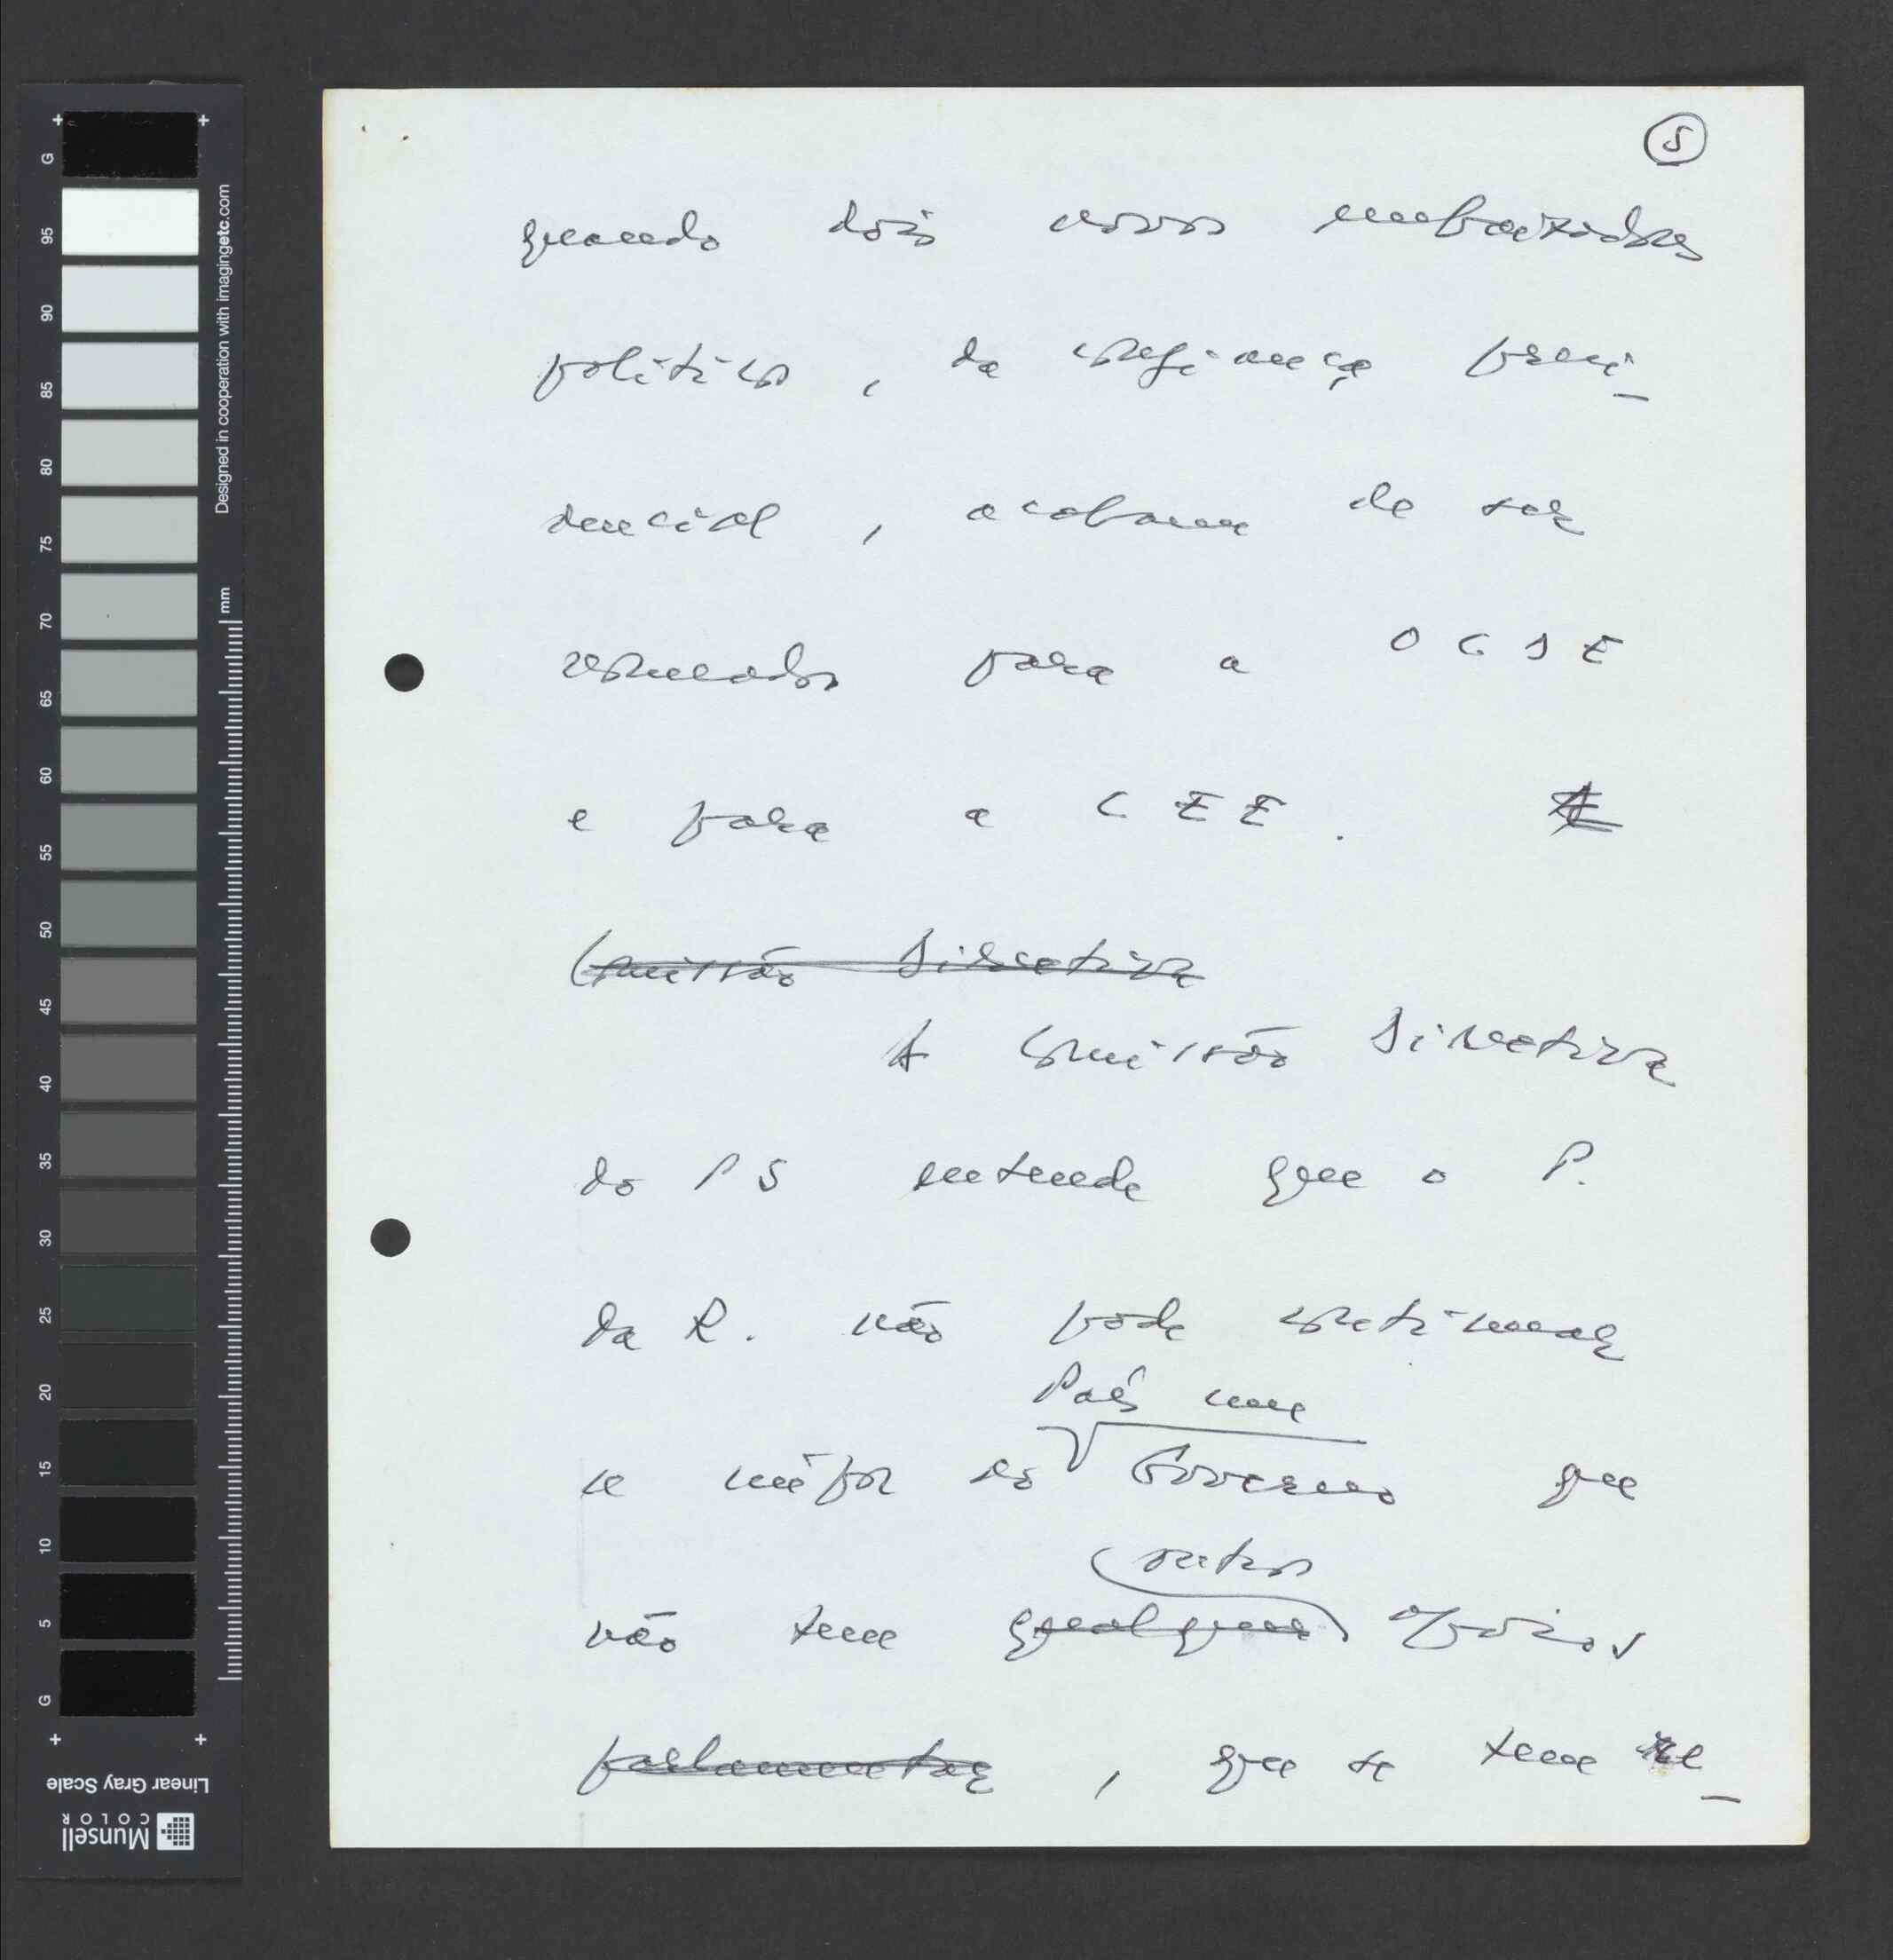 5
quando dois novos embaixadores
políticos, da confiança presi-
dencial, acabam de ser
nomeados para a OCDE
e para a CEE. A
Comissão Directiva
A Comissão Directiva
do PS entende que o P.
da R. não pode continuar
País um
a impor ao Governo que
outros
não tem qualquer apoios
parlamentar, que se tem re-
G
95
90
85
80
75
70
65
60
55
50
45
40
35
30
25
20
15
10
5
G
Designed in cooperation with imagingetc.com
mm
Linear Gray Scale
Munsell
COLOR